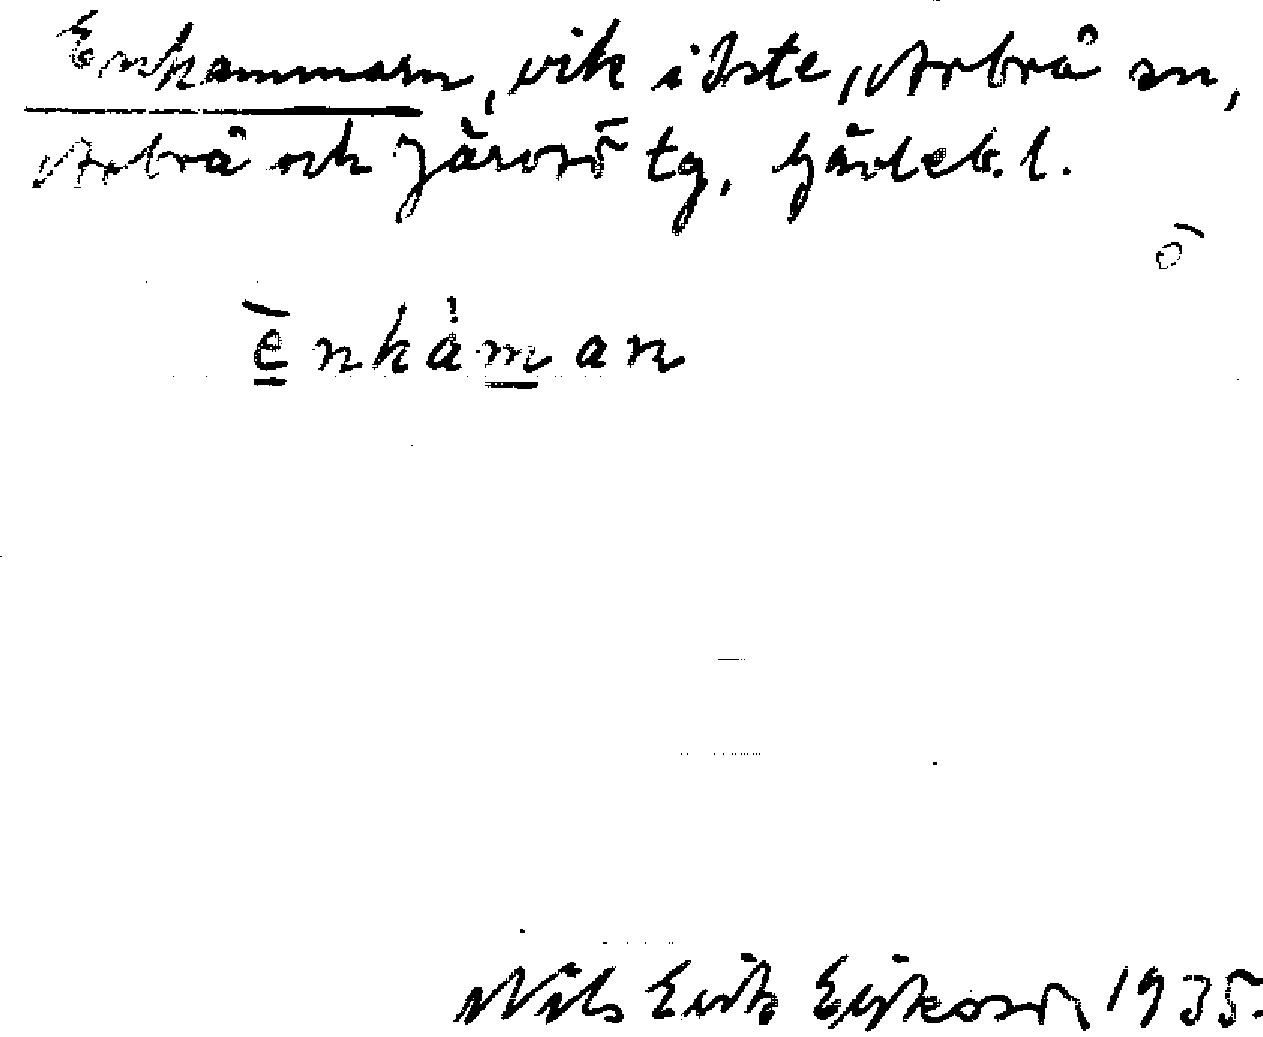 Enkammarn, vik i Iste, Arbrå sn,
Arbrå och Järvsö tg, Gävleb. l.
ö
ènkàman
Nils Erik 1935.